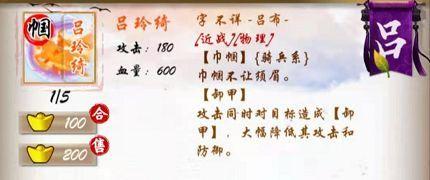 巾帼
吕玲绮
1/5
100 合
200 售
吕玲绮
攻击：180
血量：600
字 不详 -吕布-
[近战][物理]
【巾帼】{骑兵系}
巾帼不让须眉。
【卸甲】
攻击同时对目标造成【卸
甲】，大幅降低其攻击和
防御。
吕